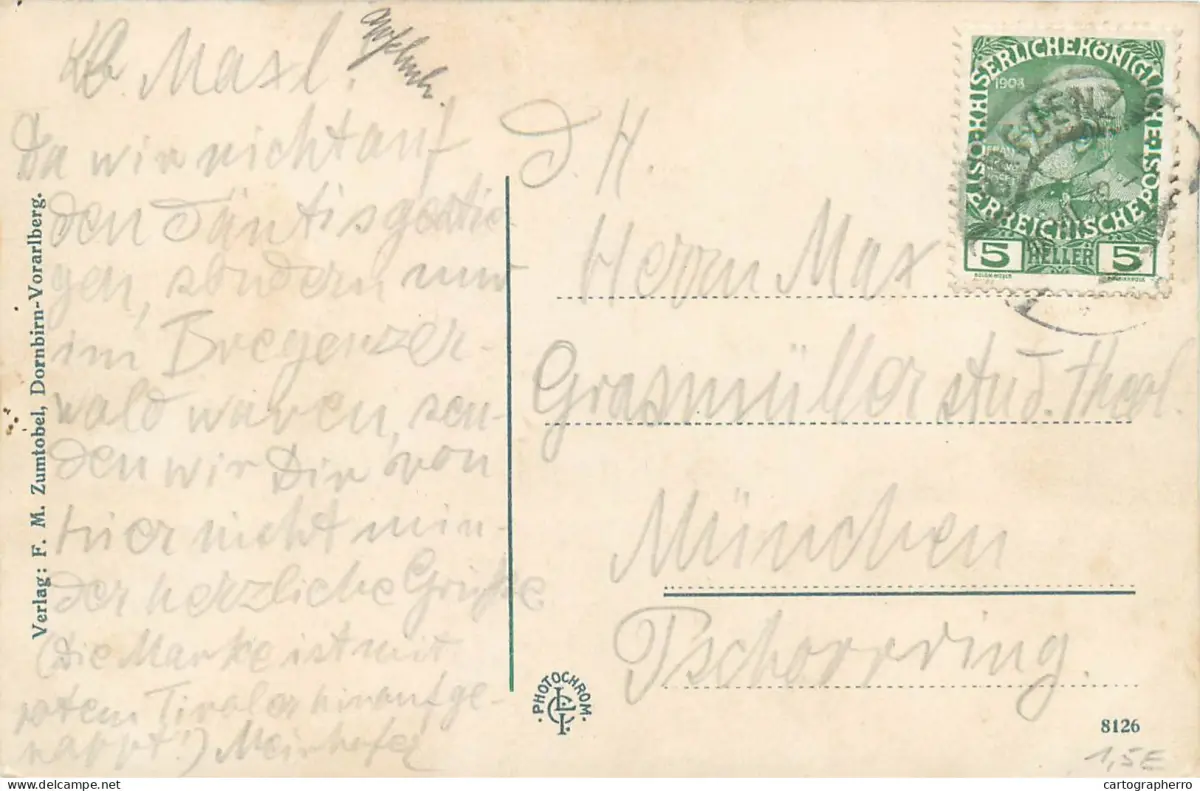 Lb. Maxl!
Da wir nicht auf
den Säntis gestie-
gen, sondern nur
im Bregenzer-
wald waren, sen-
den wir Dir von
hier nicht min-
der herzliche Grüße
(Die Marke ist mit
rotem Tiroler hinaufge-
pappt!) Meinhofer
D. H.
Herrn Max
Grasmüller stud. theol.
München
Pschorrring.
KAISERLICHE KÖNIGLICHE ÖSTERREICHISCHE POST
1908
5 HELLER 5
BREGENZ
Verlag: F. M. Zumtobel, Dornbirn-Vorarlberg.
PHOTOCHROM
8126
1,5E
cartographerro